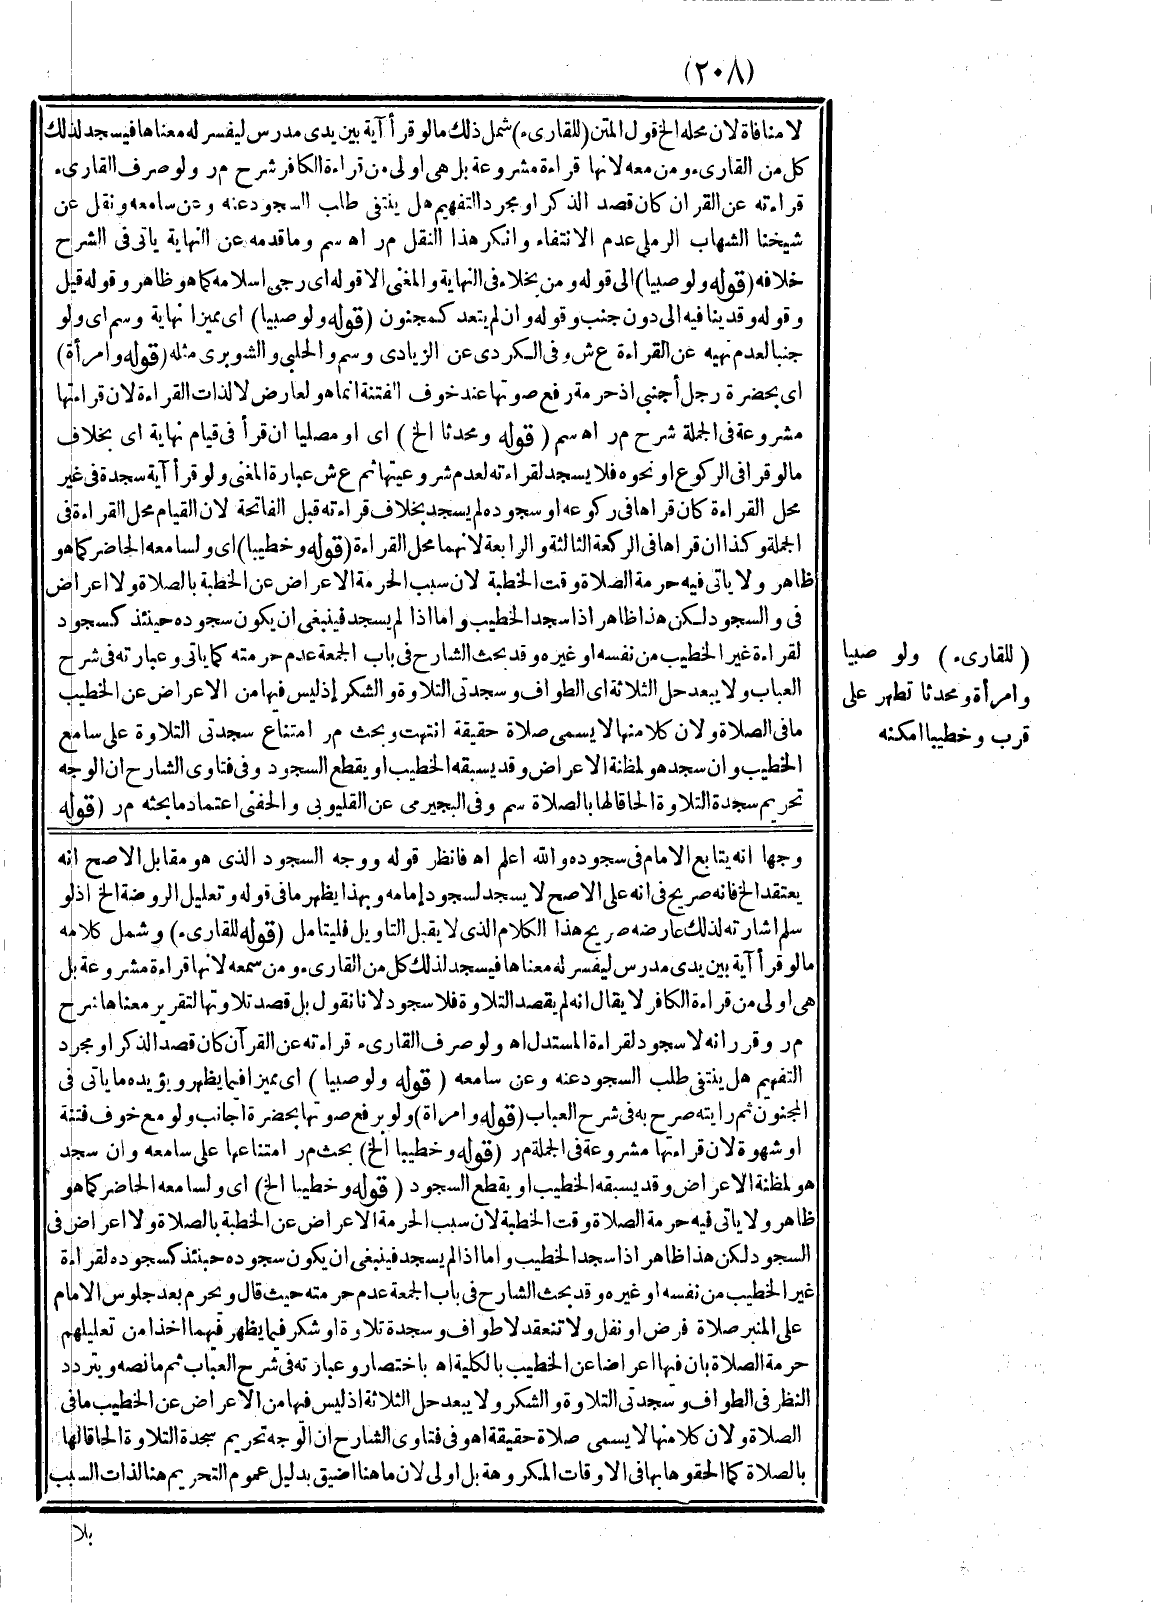 (٢٠٨)
لا منافاة لان محله الخ قول المتن (للقارىء) شمل ذلك مالو قرأ آية بين يدى مدرس ليفسر له معناها فيسجد لذلك
كل من القارىء ومن معه لانها قراءة مشروعة بل هى اولى من قراءة الكافر شرح مر ولو صرف القارىء
قراءته عن القران كان قصد الذكر او مجرد التفهيم هل ينتفى طلب السجود عنه وعن سامعه ونقل عن
شيخنا الشهاب الرملى عدم الانتفاء وانكر هذا النقل مر اه سم وما قدمه عن النهاية ياتى فى الشرح
خلافه (قوله ولو صبيا) الى قوله ومن بخلاء فى النهاية والمغنى الا قوله اى رجى اسلامه كما هو ظاهر وقوله قيل
وقوله وقد ينافيه الى دون جنب وقوله وان لم يتعد كمجنون (قوله ولو صبيا) اى مميزا نهاية وسم اى ولو
جنبا لعدم نهيه عن القراءة ع ش وفى الكردى عن الزيادى وسم والحلبى والشوبرى مثله (قوله وامرأة)
اى بحضرة رجل أجنبى اذ حرمة رفع صوتها عند خوف الفتنة انما هو لعارض لا لذات القراءة لان قراءتها
مشروعة فى الجملة شرح مر اه سم (قوله ومحدثا الخ) اى او مصليا ان قرأ فى قيام نهاية اى بخلاف
مالو قرا فى الركوع او نحوه فلا يسجد لقراءته لعدم شروعيتها ثم ع ش عبارة المغنى ولو قرأ آية سجدة فى غير
محل القراءة كان قراها فى ركوعه او سجوده لم يسجد بخلاف قراءته قبل الفاتحة لان القيام محل القراءة فى
الجملة وكذا ان قراها فى الركعة الثالثة والرابعة لانهما محل القراءة (قوله وخطيبا) اى ولسامعه الحاضر كما هو
ظاهر ولا ياتى فيه حرمة الصلاة وقت الخطبة لان سبب الحرمة الاعراض عن الخطبة بالصلاة ولا اعراض
فى والسجود لكن هذا ظاهر اذا سجد الخطيب واما اذا لم يسجد فينبغى ان يكون سجوده حينئذ كسجود
لقراءة غير الخطيب من نفسه او غيره وقد بحث الشارح فى باب الجمعة عدم حرمته كما ياتى وعبارته فى شرح
العباب ولا يبعد حل الثلاثة اى الطواف وسجدتى التلاوة والشكر إذ ليس فيها من الاعراض عن الخطيب
ما فى الصلاة ولان كلا منها لا يسمى صلاة حقيقة انتهت وبحث مر امتناع سجدتى التلاوة على سامع
الخطيب وان سجد هو لمظنة الاعراض وقد يسبقه الخطيب او يقطع السجود وفى فتاوى الشارح ان الوجه
تحريم سجدة التلاوة الحاقا لها بالصلاة سم وفى البجيرمى عن القليوبى والحفنى اعتماد ما بحثه مر (قوله
(للقارىء) ولو صبيا
وامرأة ومحدثا تطهر على
قرب وخطيبا امكنه
وجها انه يتابع الامام فى سجوده والله اعلم اه فانظر قوله ووجه السجود الذى هو مقابل الاصح انه
يعتقد الخ فانه صريح فى انه على الاصح لا يسجد لسجود إمامه وبهذا يظهر ما فى قوله وتعليل الروضة الخ اذ لو
سلم اشارته لذلك عارضه صريح هذا الكلام الذى لا يقبل التاويل فليتامل (قوله للقارىء) وشمل كلامه
مالو قرأ آية بين يدى مدرس ليفسر له معناها فيسجد لذلك كل من القارىء ومن سمعه لانها قراءة مشروعة بل
هى اولى من قراءة الكافر لا يقال انه لم يقصد التلاوة فلا سجود لانا نقول بل قصد تلاوتها لتقرير معناها شرح
مر وقرر انه لا سجود لقراءة المستدل اه ولو صرف القارىء قراءته عن القرآن كان قصد الذكر او مجرد
التفهيم هل ينتفى طلب السجود عنه وعن سامعه (قوله ولو صبيا) اى مميزا فيما يظهر ويؤيده ما ياتى فى
المجنون ثم رايته صرح به فى شرح العباب (قوله وامراة) ولو برفع صوتها بحضرة أجانب ولو مع خوف فتنة
او شهوة لان قراءتها مشروعة فى الجملة مر (قوله وخطيبا الخ) بحث مر امتناعها على سامعه وان سجد
هو لمظنة الاعراض وقد يسبقه الخطيب او يقطع السجود (قوله وخطيبا الخ) اى ولسامعه الحاضر كما هو
ظاهر ولا ياتى فيه حرمة الصلاة وقت الخطبة لان سبب الحرمة الاعراض عن الخطبة بالصلاة ولا اعراض فى
السجود لكن هذا ظاهر اذا سجد الخطيب واما اذا لم يسجد فينبغى ان يكون سجوده حينئذ كسجوده لقراءة
غير الخطيب من نفسه او غيره وقد بحث الشارح فى باب الجمعة عدم حرمته حيث قال ويحرم بعد جلوس الامام
على المنبر صلاة فرض او نفل ولا تنعقد لا طواف وسجدة تلاوة او شكر فيما يظهر فيهما اخذا من تعليلهم
حرمة الصلاة بان فيها اعراضا عن الخطيب بالكلية اه باختصار وعبارته فى شرح العباب ثم ما نصه ويتردد
النظر فى الطواف وسجدتى التلاوة والشكر ولا يبعد حل الثلاثة اذ ليس فيها من الاعراض عن الخطيب ما فى
الصلاة ولان كلا منها لا يسمى صلاة حقيقة اه وفى فتاوى الشارح ان الوجه تحريم سجدة التلاوة الحاقا لها
بالصلاة كما الحقوها بها فى الاوقات المكروهة بل اولى لان ما هنا اضيق بدليل عموم التحريم هنا لذات السبب
بلا